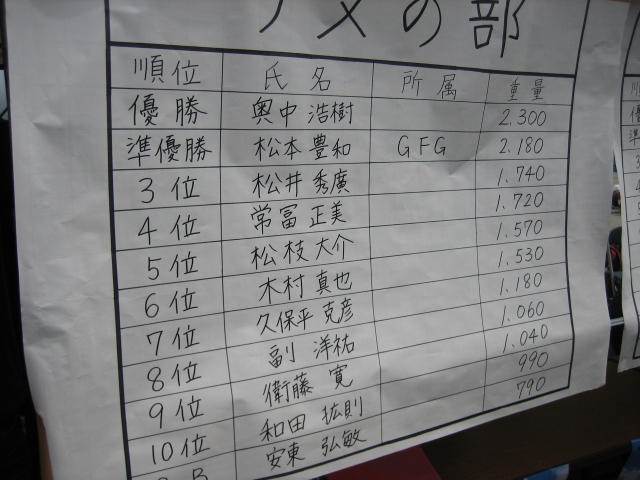 メの部
順位 氏名 所属 重量
優勝 奥中 浩樹 2.300
準優勝 松本 豊和 GFG 2.180
3位 松井 秀廣 1.740
4位 常冨 正美 1.720
5位 松枝 大介 1.570
6位 木村 真也 1.530
7位 久保平 克彦 1.180
8位 副 洋祐 1.060
9位 衛藤 寛 1.040
10位 和田 拡則 990
安東 弘敏 790